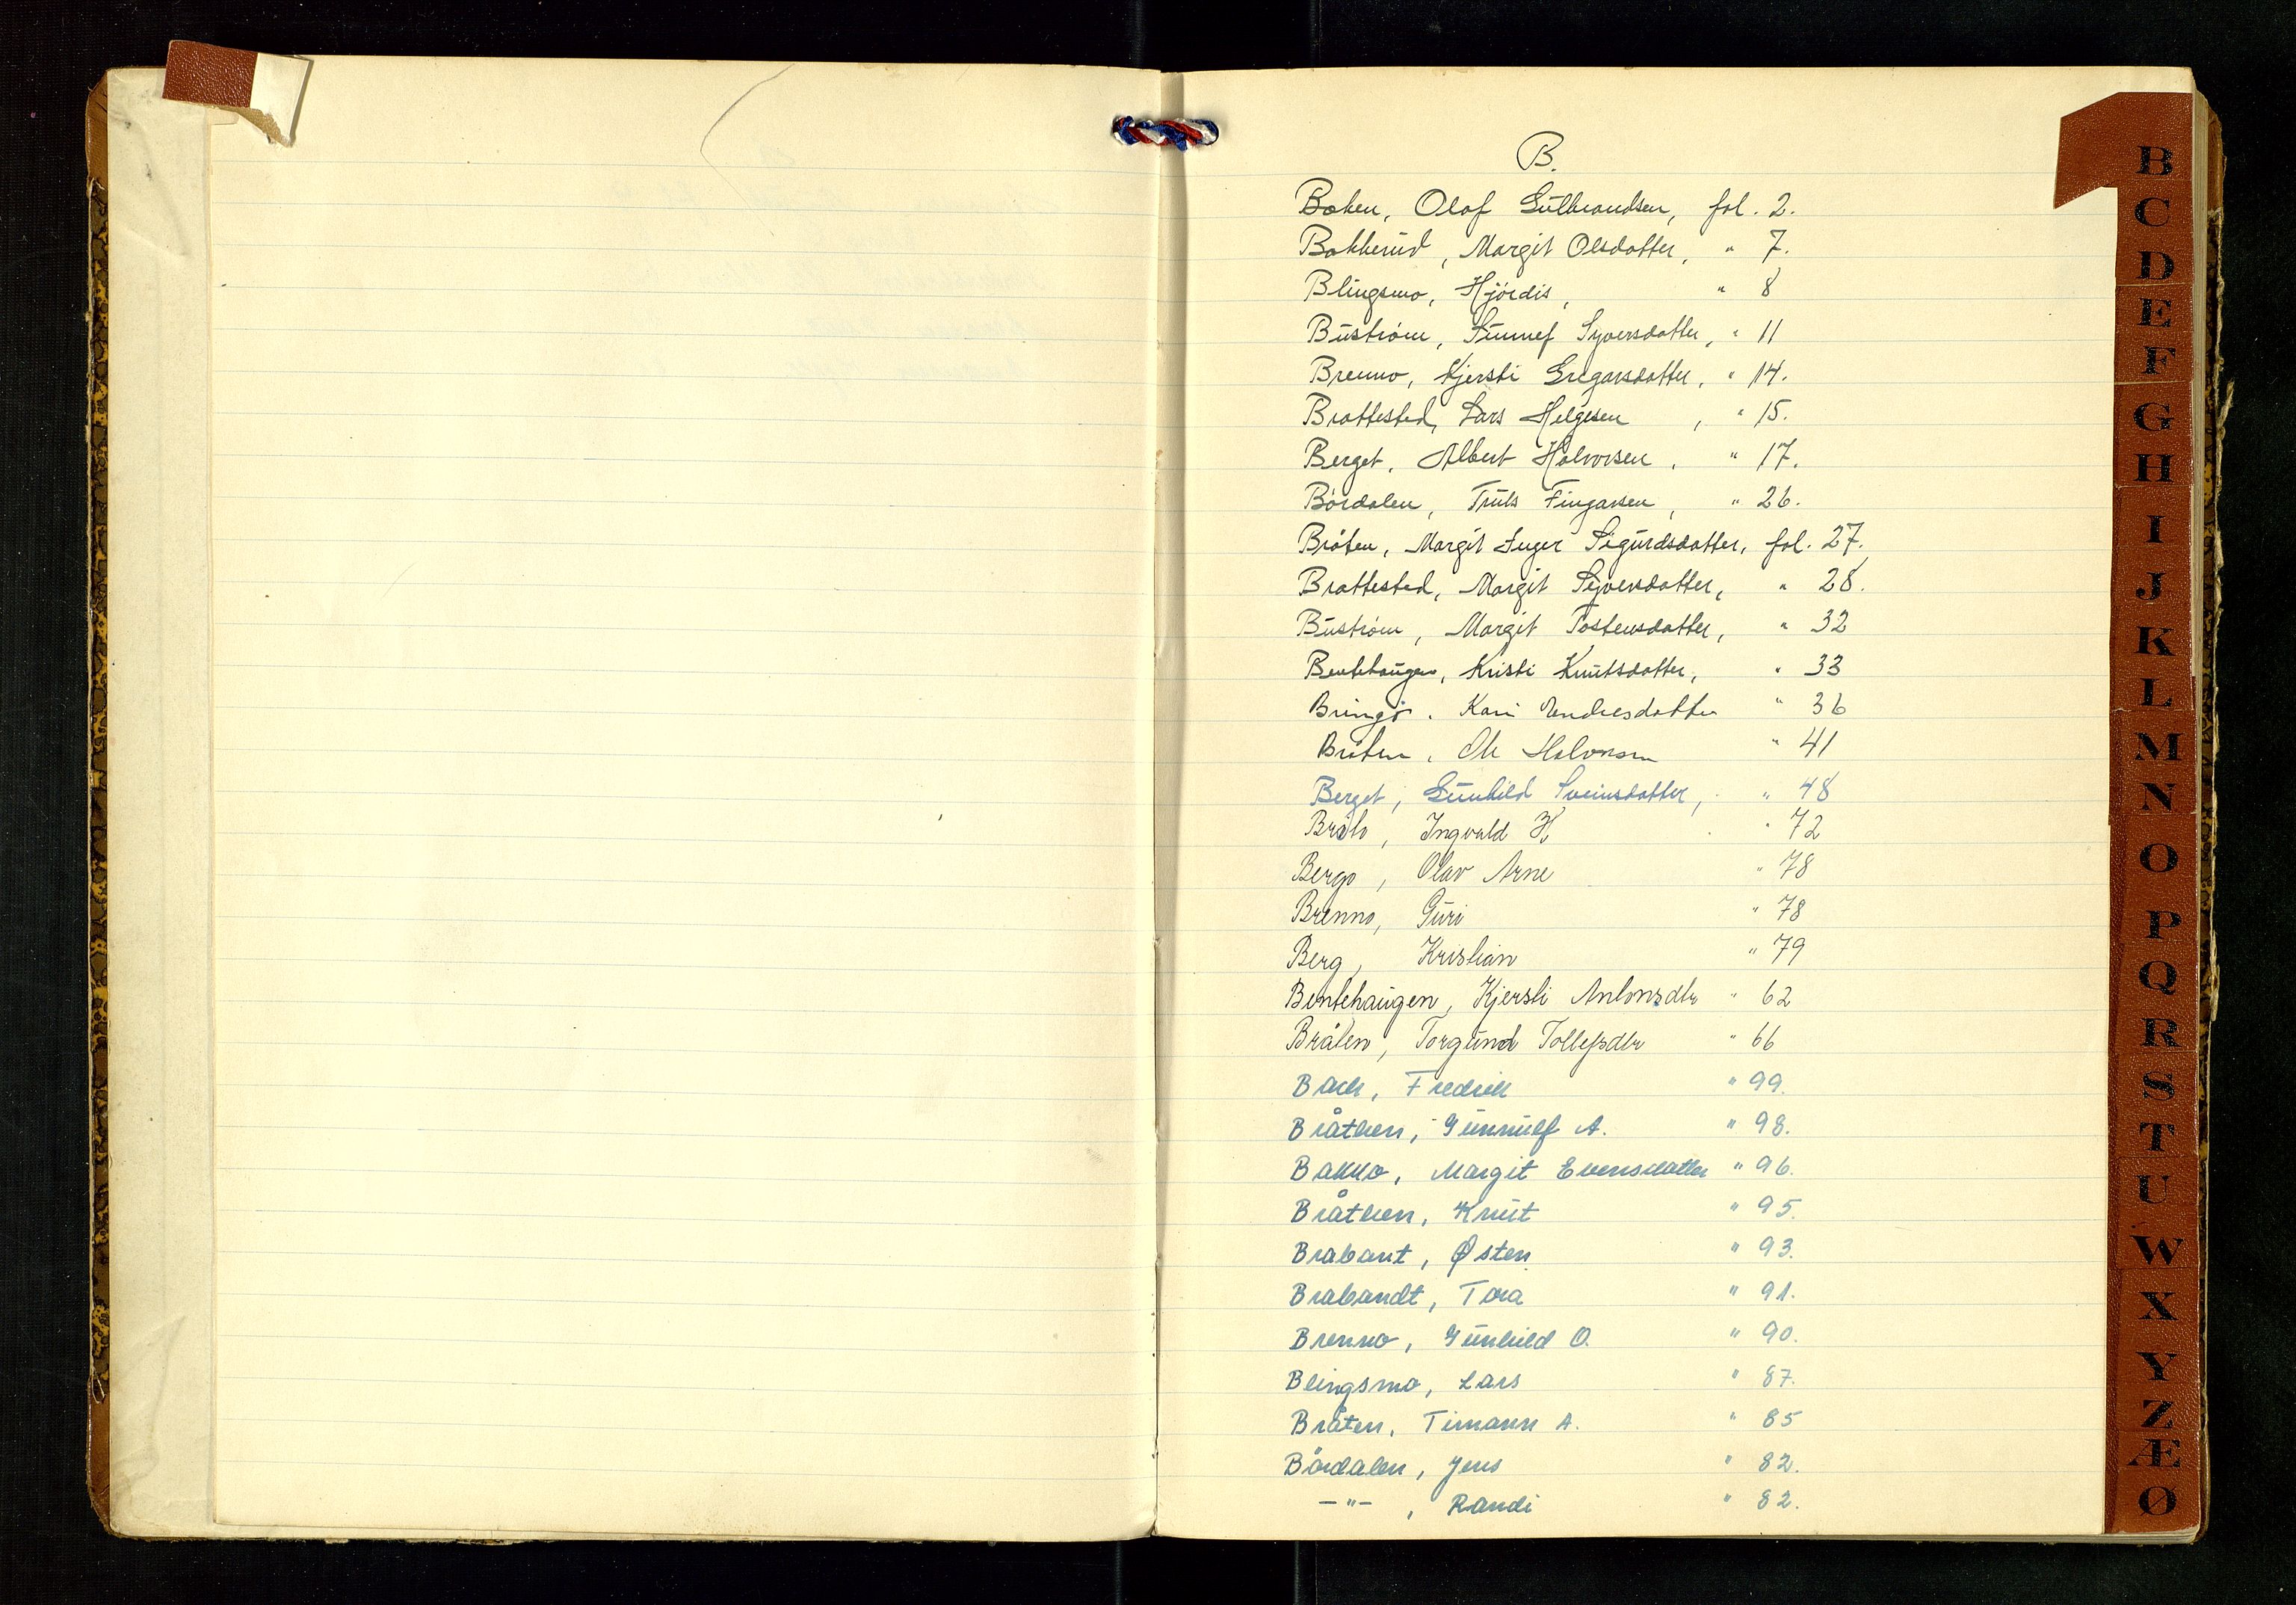 B.
Boken, Olaf Gulbrandsen, fol. 2.
Bakkerud, Margit Olsdatter, " 7.
Blingsmo, Hjördis, " 8
Buström, Sunnef Syversdatter, " 11
Brenno, Kjersti Gregarsdatter, " 14.
Brattested, Lars Helgesen, " 15.
Berget, Albert Halvorsen, " 17.
Bördalen, Truls Fingarsen, " 26.
Bråten, Margit Inger Sigurdsdatter, fol. 27.
Brattested, Margit Syversdatter, " 28.
Buström, Margit Tostensdatter, " 32
Bentehaugen, Kristi Knutsdatter, " 33
Bringö, Kari Endresdatter " 36
Bråten, Ole Halvorsen " 41
Berget, Gunhild Sveinsdatter, " 48
Ingvald H " 72
Bergo, Olav Arne " 78
Brenno, Guri " 78
Berg, Kristian " 79
Bentehaugen, Kjersti Antonsdtr " 62
Bråten, Torgund Tollefsdtr " 66
Back, Fredrik " 99.
Bråthen, Gunnulf A. " 98.
Bakko, Margit Evensdatter " 96.
Bråthen, Knut " 95.
Brabant, Østen " 93.
Brabandt, Tora " 91.
Brenno, Gunhild O. " 90.
Blingsmo, Lars " 87.
Bråten, Timann A. " 85
Bördalen, Jens " 82.
-"- , Randi " 82.
B
C
D
E
F
G
H
I
J
K
L
M
N
O
P
Q
R
S
T
U
W
X
Y
Z
Æ
Ø